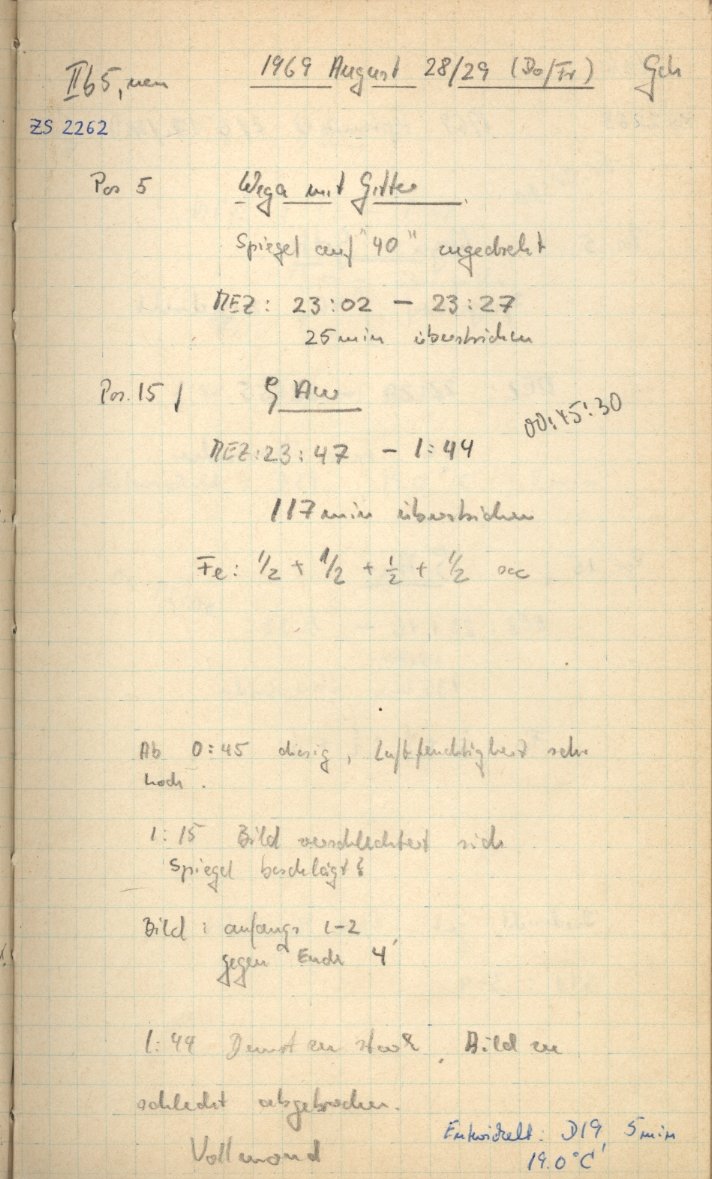 IIb5, neu 1969 August 28/29 (Do/Fr) Geh
ZS 2262
Pos 5 Wega mit Gitter
Spiegel auf "40" zugedreht
MEZ: 23:02 - 23:27
25 min überstrichen
Pos. 15
00:45:30
MEZ: 23:47 - 1:44
117 min überstrichen
Fe: 1/2 + 1/2 + 1/2 + 1/2 sec
Ab 0:45 diesig, Luftfeuchtigkeit sehr
hoch.
1:15 Bild verschlechtert sich
Spiegel beschlägt?
Bild: anfangs 1-2,
gegen Ende 4
1:44 Dunst zu stark, Bild zu
schlecht abgebrochen.
Vollmond
Entwickelt: D19, 5 min
19.0°C